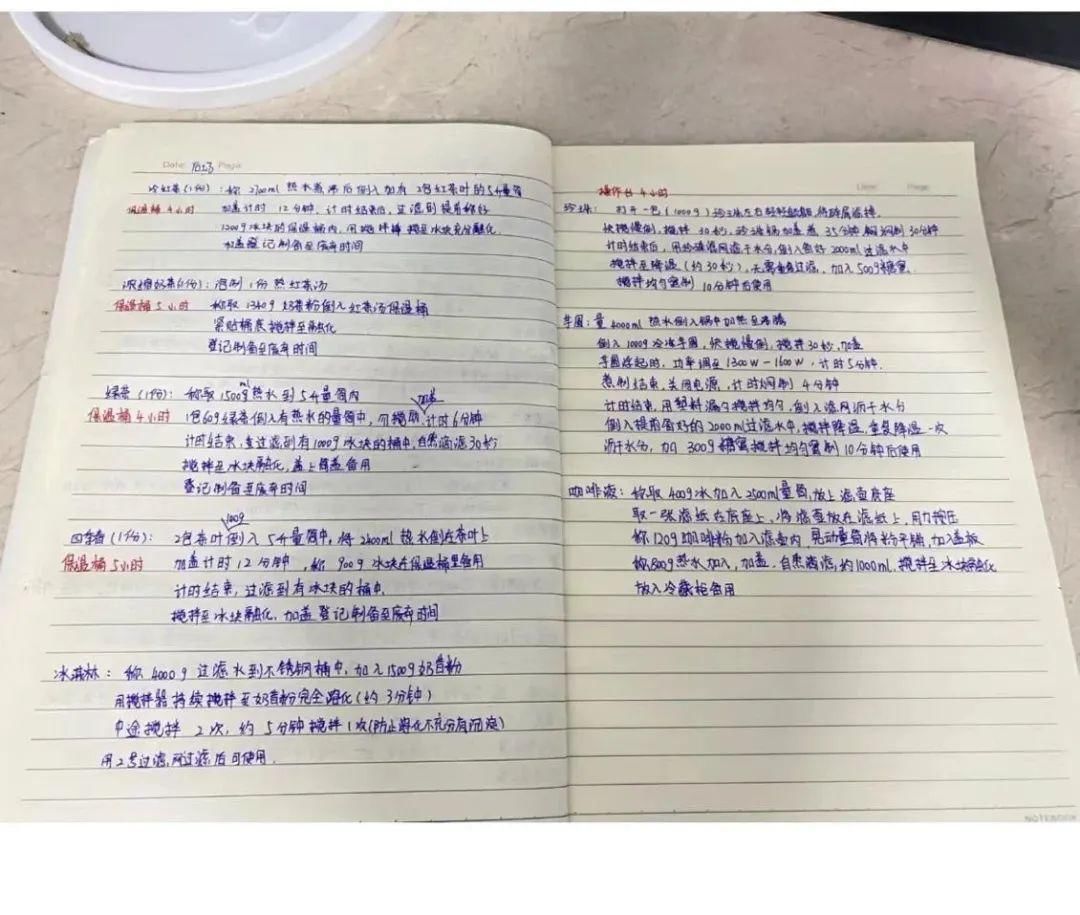 Date: 后场 Page:
冷红茶(1份): 称2700ml 热水煮沸后倒入加有2包红茶叶的5升量筒
保温桶4小时 加盖计时12分钟,计时结束后,过滤到提前称好
1200g冰块的保温桶内,用搅拌棒 搅至冰块充分融化
加盖登记制备至废弃时间
浓缩奶茶(1份): 泡制1份热红茶汤
保温桶5小时 称取1340g奶茶粉倒入红茶汤保温桶
紧贴桶底搅拌至融化
登记制备至废弃时间
ml
绿茶(1份): 称取1500g热水到5升量筒内
加盖
保温桶4小时 1包60g绿茶倒入有热水的量筒中,勿搅动,计时6分钟
计时结束,茶过滤到有1000g冰块的桶中,自然滴滤30秒
搅拌至冰块融化,盖上筒盖备用
登记制备至废弃时间
100g
四季春(1份): 2包茶叶倒入5升量筒中,将2400ml热水倒在茶叶上
保温桶5小时 加盖计时12分钟,称900g冰块在保温桶里备用
计时结束,过滤到有冰块的桶中,
搅拌至冰块融化,加盖登记制备至废弃时间
冰淇林: 称4000g过滤水到不锈钢桶中,加入1500g奶昔粉
用搅拌器持续搅拌至奶昔粉完全溶化(约3分钟)
中途搅拌2次,约5分钟搅拌1次(防止溶化不充分有沉淀)
用2号过滤网过滤后可使用.
操作台4小时
Date: Page:
珍珠: 打开一包(1000g)珍珠左右轻轻
快搅慢倒,搅拌30秒,珍珠锅加盖煮35分钟 焖制30分钟
计时结束后,用珍珠滤网滤干水分,倒入备好2000ml过滤水中
搅拌至降温(约30秒),无需重复过滤,加入500g糖蜜
搅拌均匀蜜制10分钟后使用
芋圆: 量4000ml热水倒入锅中加热至沸腾
倒入1000g冷冻芋圆,快搅慢倒,搅拌30秒,加盖
芋圆浮起时,功率调至1300W-1600W,计时5分钟.
煮制结束,关闭电源,计时焖制4分钟
计时结束,用塑料漏勺搅拌均匀,倒入滤网沥干水分
倒入提前备好的2000ml过滤水中,搅拌降温,重复降温一次
沥干水分,加300g糖蜜搅拌均匀蜜制10分钟后使用
咖啡液: 称取400g冰加入2500ml量筒,放上滤壶底座
取一张滤纸在底座上,将滤壶放在滤纸上,用力按压
称120g咖啡粉加入滤壶内,晃动量筒将粉平铺,加入盖板
称800g热水加入,加盖,自然滴滤,约1000ml,搅拌至冰块融化
放入冷藏柜备用
NOTEBOOK